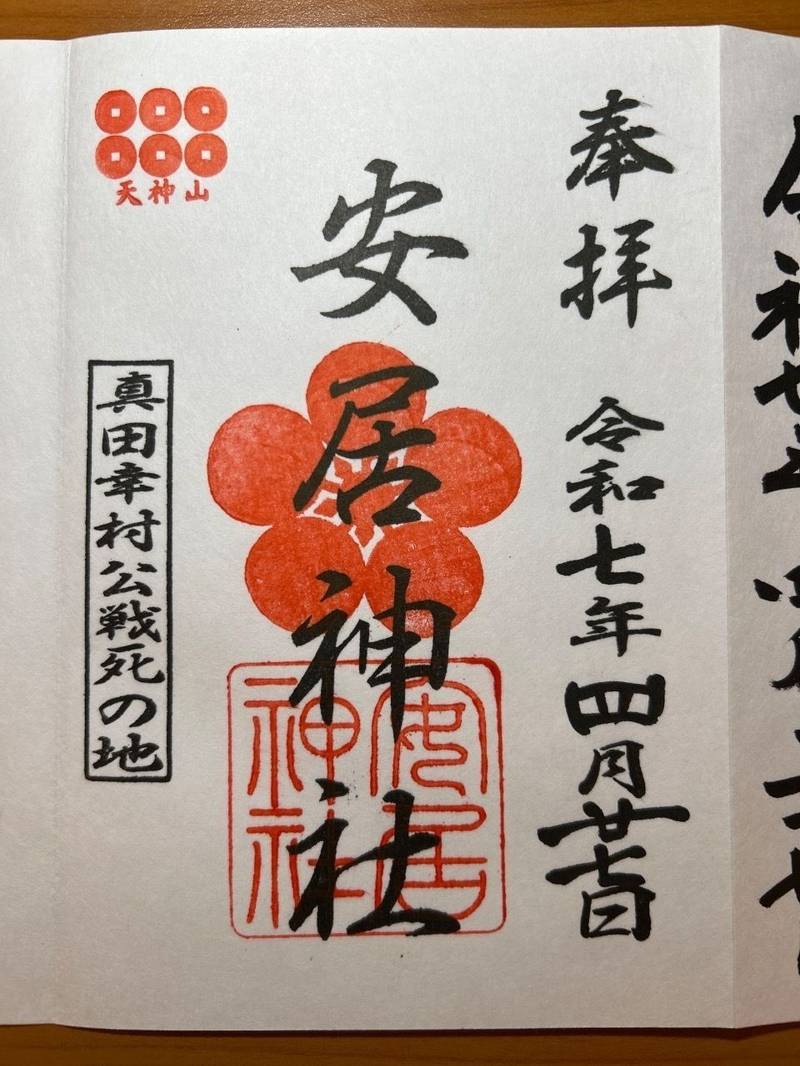 奉拝 令和七年四月廿七日
安居神社
安居神社
天神山
真田幸村公戦死の地